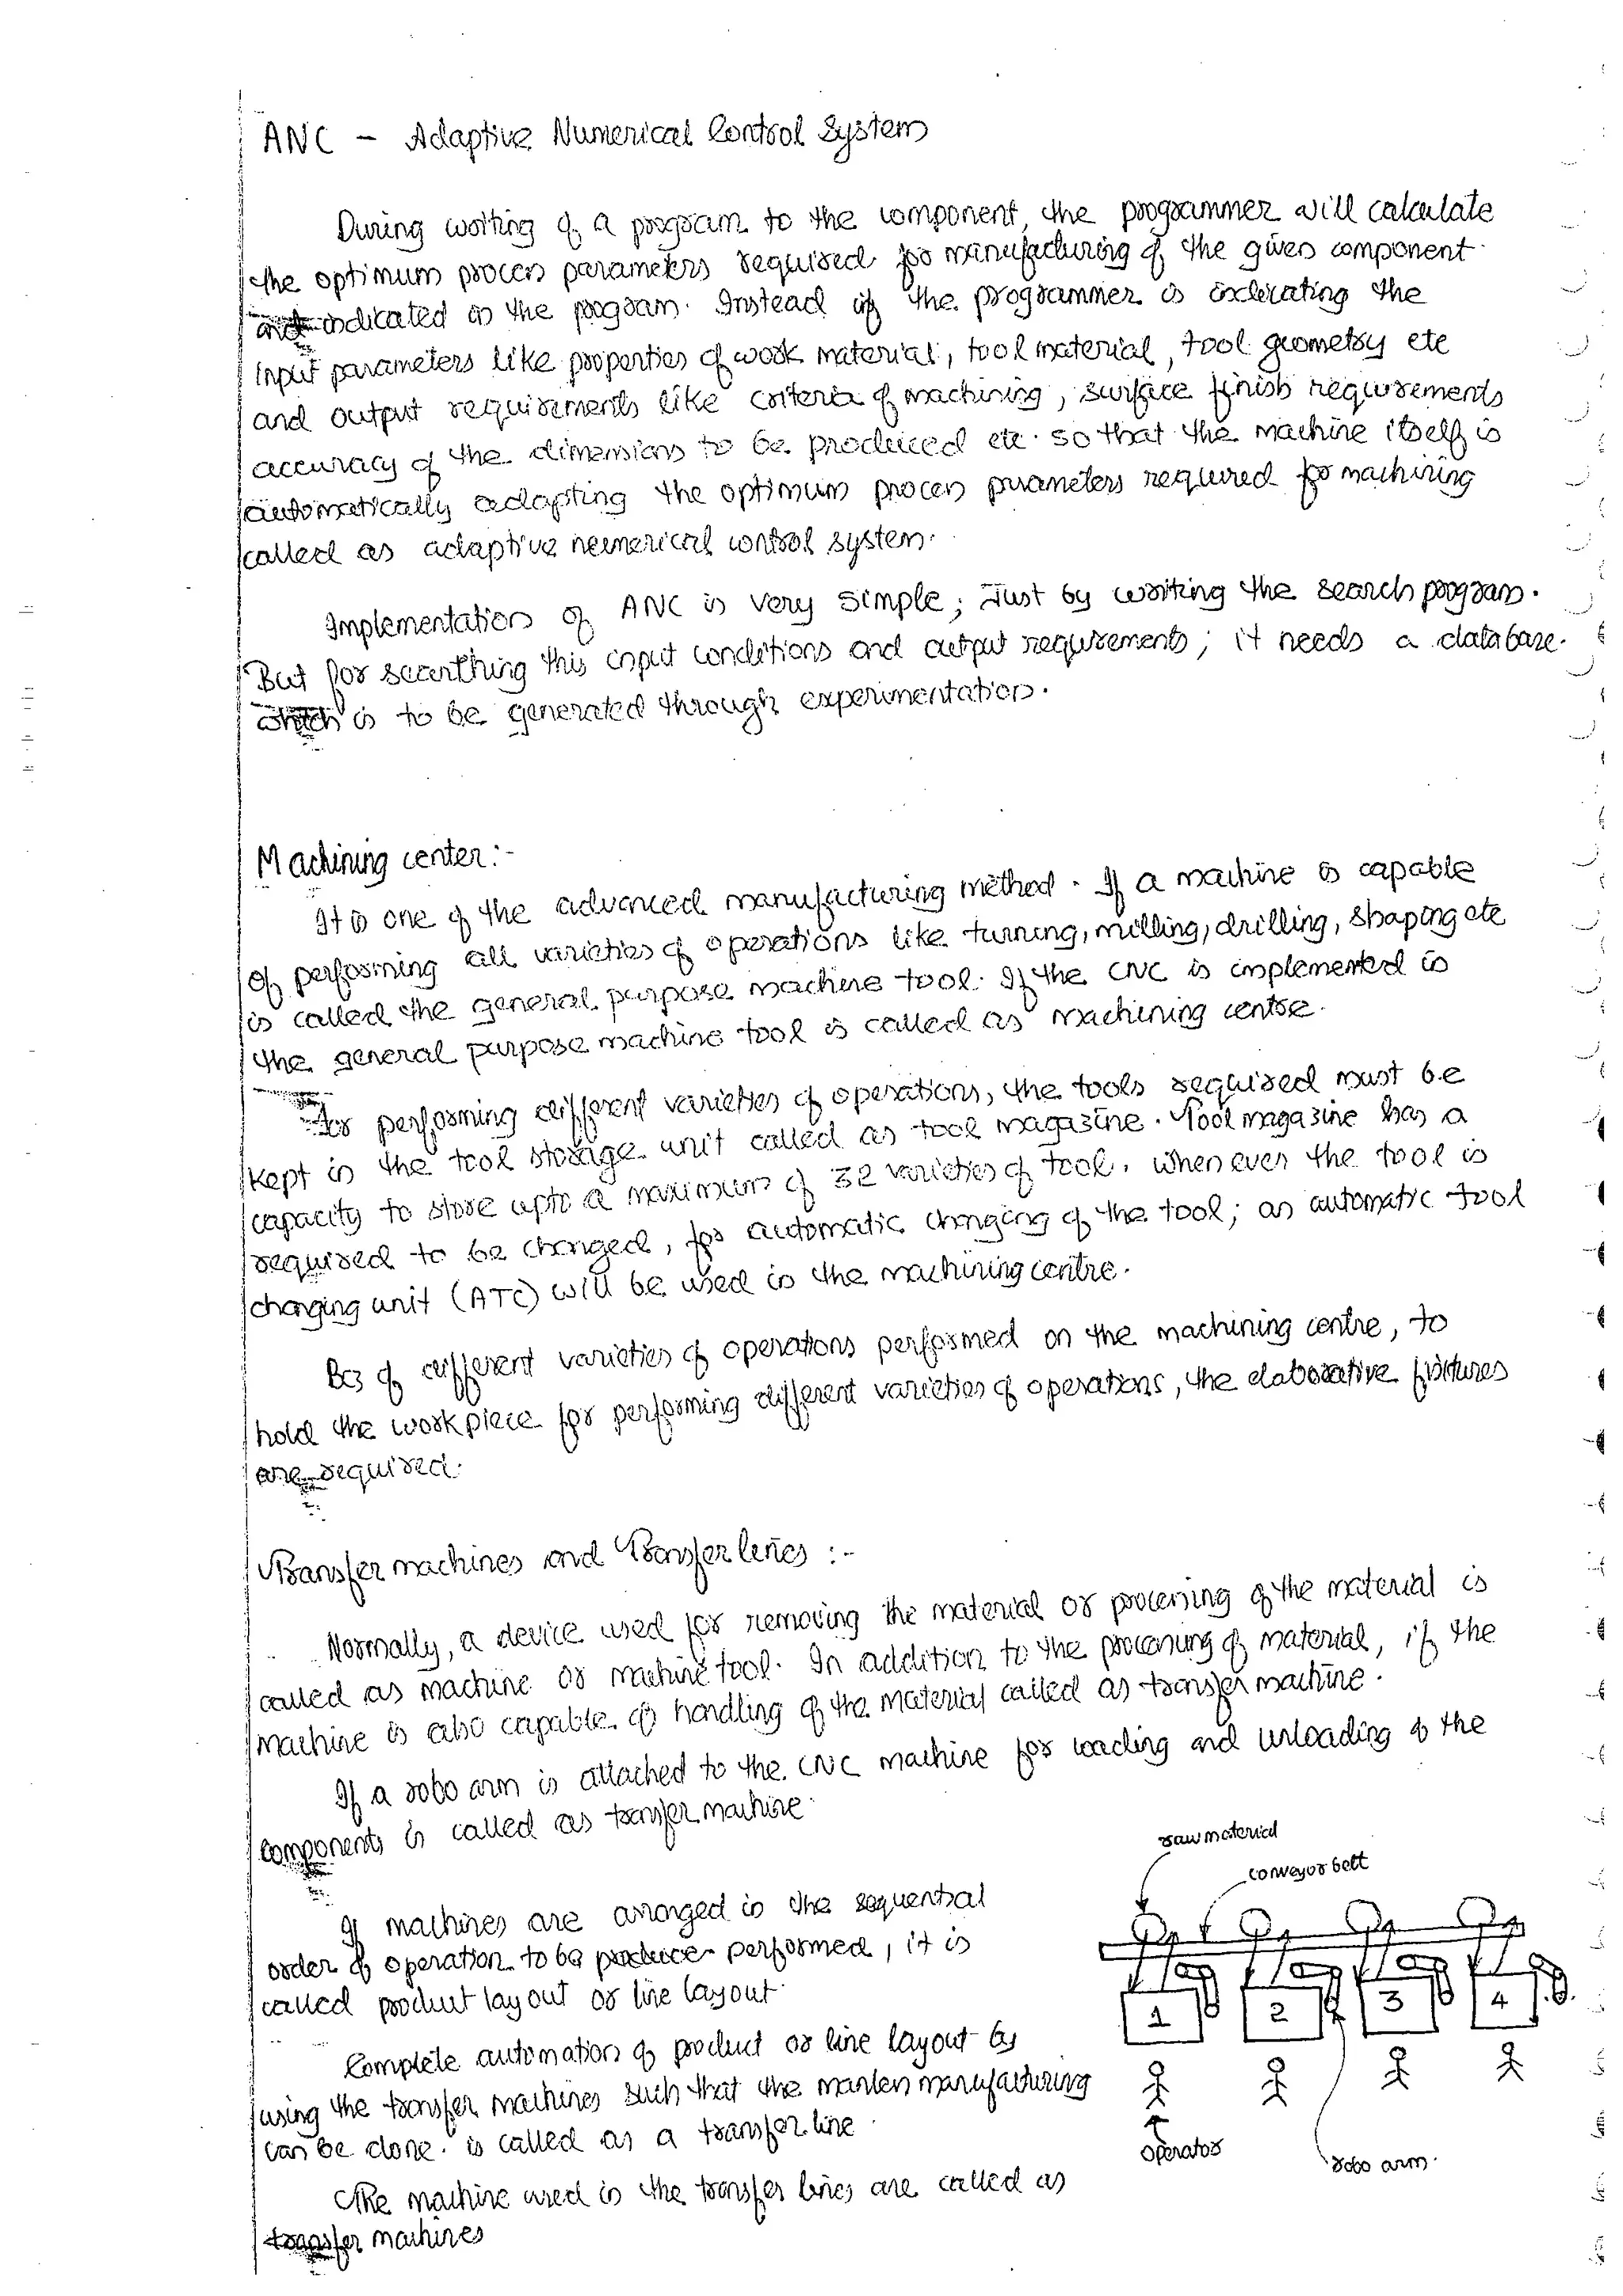 ANC - Adaptive Numerical Control System
During writing of a program to the component, the programmer will calculate
the optimum process parameters required for manufacturing of the given component
and indicated in the program. Instead if the programmer is indicating the
input parameters like properties of work material, tool material, tool geometry etc
and output requirements like criteria of machining, surface finish requirements
accuracy of the dimensions to be produced etc. so that the machine itself is
automatically adapting the optimum process parameters required for machining
called as adaptive numerical control system.
Implementation of ANC is very simple; Just by writing the search program.
But for searching this input conditions and output requirements; it needs a database.
which is to be generated through experimentation.
Machining center:-
It is one of the advanced manufacturing method. If a machine is capable
of performing all varieties of operations like turning, milling, drilling, shaping etc
is called the general purpose machine tool. If the CNC is implemented in
the general purpose machine tool is called as machining centre.
For performing different varieties of operations, the tools required must be
kept in the tool storage unit called as tool magazine. Tool magazine has a
capacity to store upto a maximum of 32 varieties of tool. When ever the tool is
required to be changed, for automatic changing of the tool; an automatic tool
changing unit (ATC) will be used in the machining centre.
Bcz of different varieties of operations performed on the machining centre, to
hold the workpiece for performing different varieties of operations, the elaborative fixtures
are required.
Transfer machines and Transfer lines :-
Normally, a device used for removing the material or processing of the material is
called as machine or machine tool. In addition to the processing of material, if the
machine is also capable of handling of the material called as transfer machine.
If a robo arm is attached to the CNC machine for loading and unloading of the
components is called as transfer machine.
raw material
conveyor belt
If machines are arranged in the sequential
order of operation to be produce performed, it is
called product layout or line layout.
1 2 3 4
Complete automation of product or line layout by
using the transfer machines such that the manless manufacturing
can be done. is called as a transfer line.
operator
robo arm.
The machine used in the transfer lines are called as
transfer machines